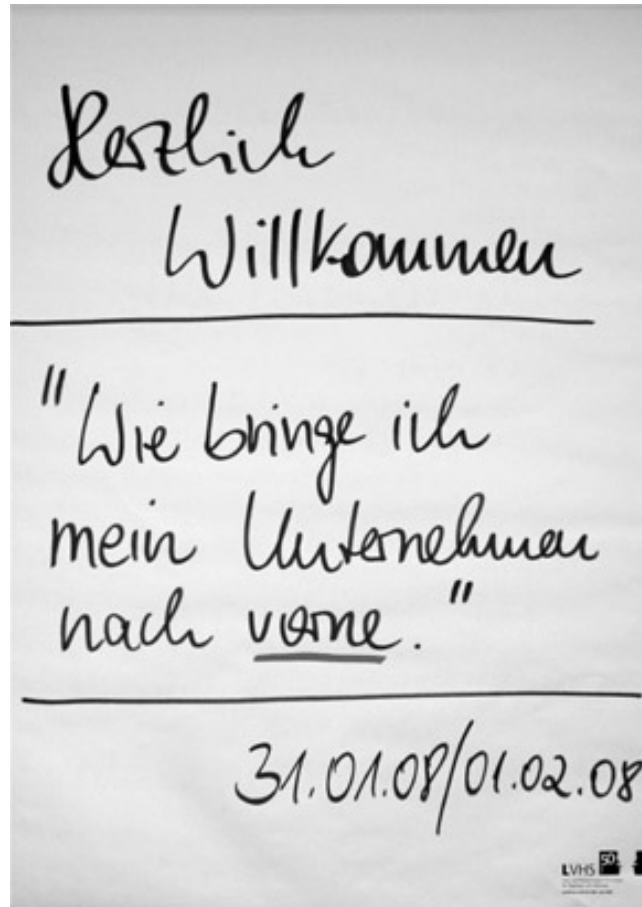 Herzlich
Willkommen
"Wie bringe ich
mein Unternehmen
nach vorne."
31.01.08/01.02.08
LVHS 50